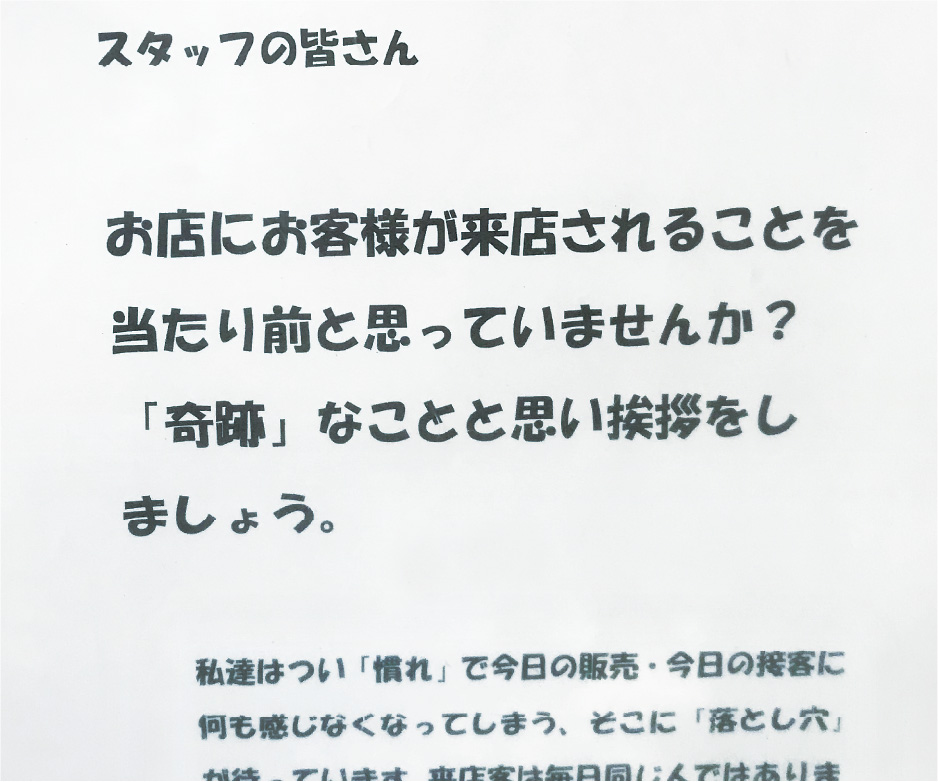 スタッフの皆さん
お店にお客様が来店されることを
当たり前と思っていませんか？
「奇跡」なことと思い挨拶をし
ましょう。
私達はつい「慣れ」で今日の販売・今日の接客に
何も感じなくなってしまう、そこに「落とし穴」
が待っています。来店客は毎日同じんではありま